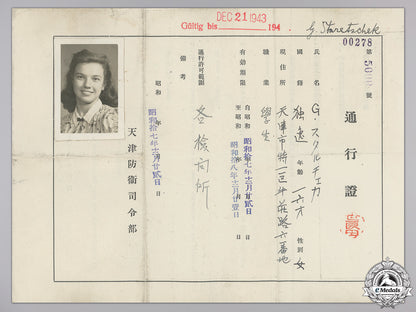 DEC 21 1943
Gültig bis 194
G. Staretschek
00278
第 50 號
通行證
氏名 G.スタルチェカ
國籍 獨逸 年齡 一六才 性別 女
現住所 天津市特一區
職業 學生
有効期限 自昭和 昭和拾七年十二月廿貳日
至昭和 昭和拾八年十二月廿壹日
通行許可範圍 各檢問所
備考
昭和拾七年十二月廿貳日
天津防衛司令部
eMedals